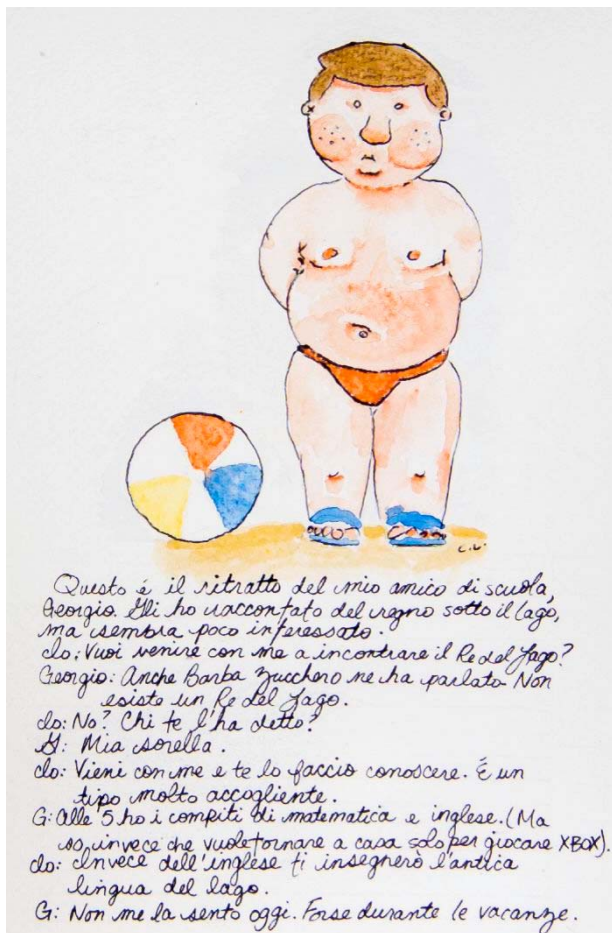 C.L.
Questo é il ritratto del mio amico di scuola,
Georgio. Gli ho raccontato del regno sotto il lago,
ma sembra poco interessato.
Io: Vuoi venire con me a incontrare il Re del Lago?
Georgio: Anche Barba Zucchero ne ha parlato. Non
esiste un Re del Lago.
Io: No? Chi te l'ha detto?
G: Mia sorella.
Io: Vieni con me e te lo faccio conoscere. É un
tipo molto accogliente.
G: Alle 5 ho i compiti di matematica e inglese. (Ma
so, invece che vuole tornare a casa solo per giocare XBOX).
Io: Invece dell'inglese ti insegneró l'antica
lingua del lago.
G: Non me la sento oggi. Forse durante le vacanze.